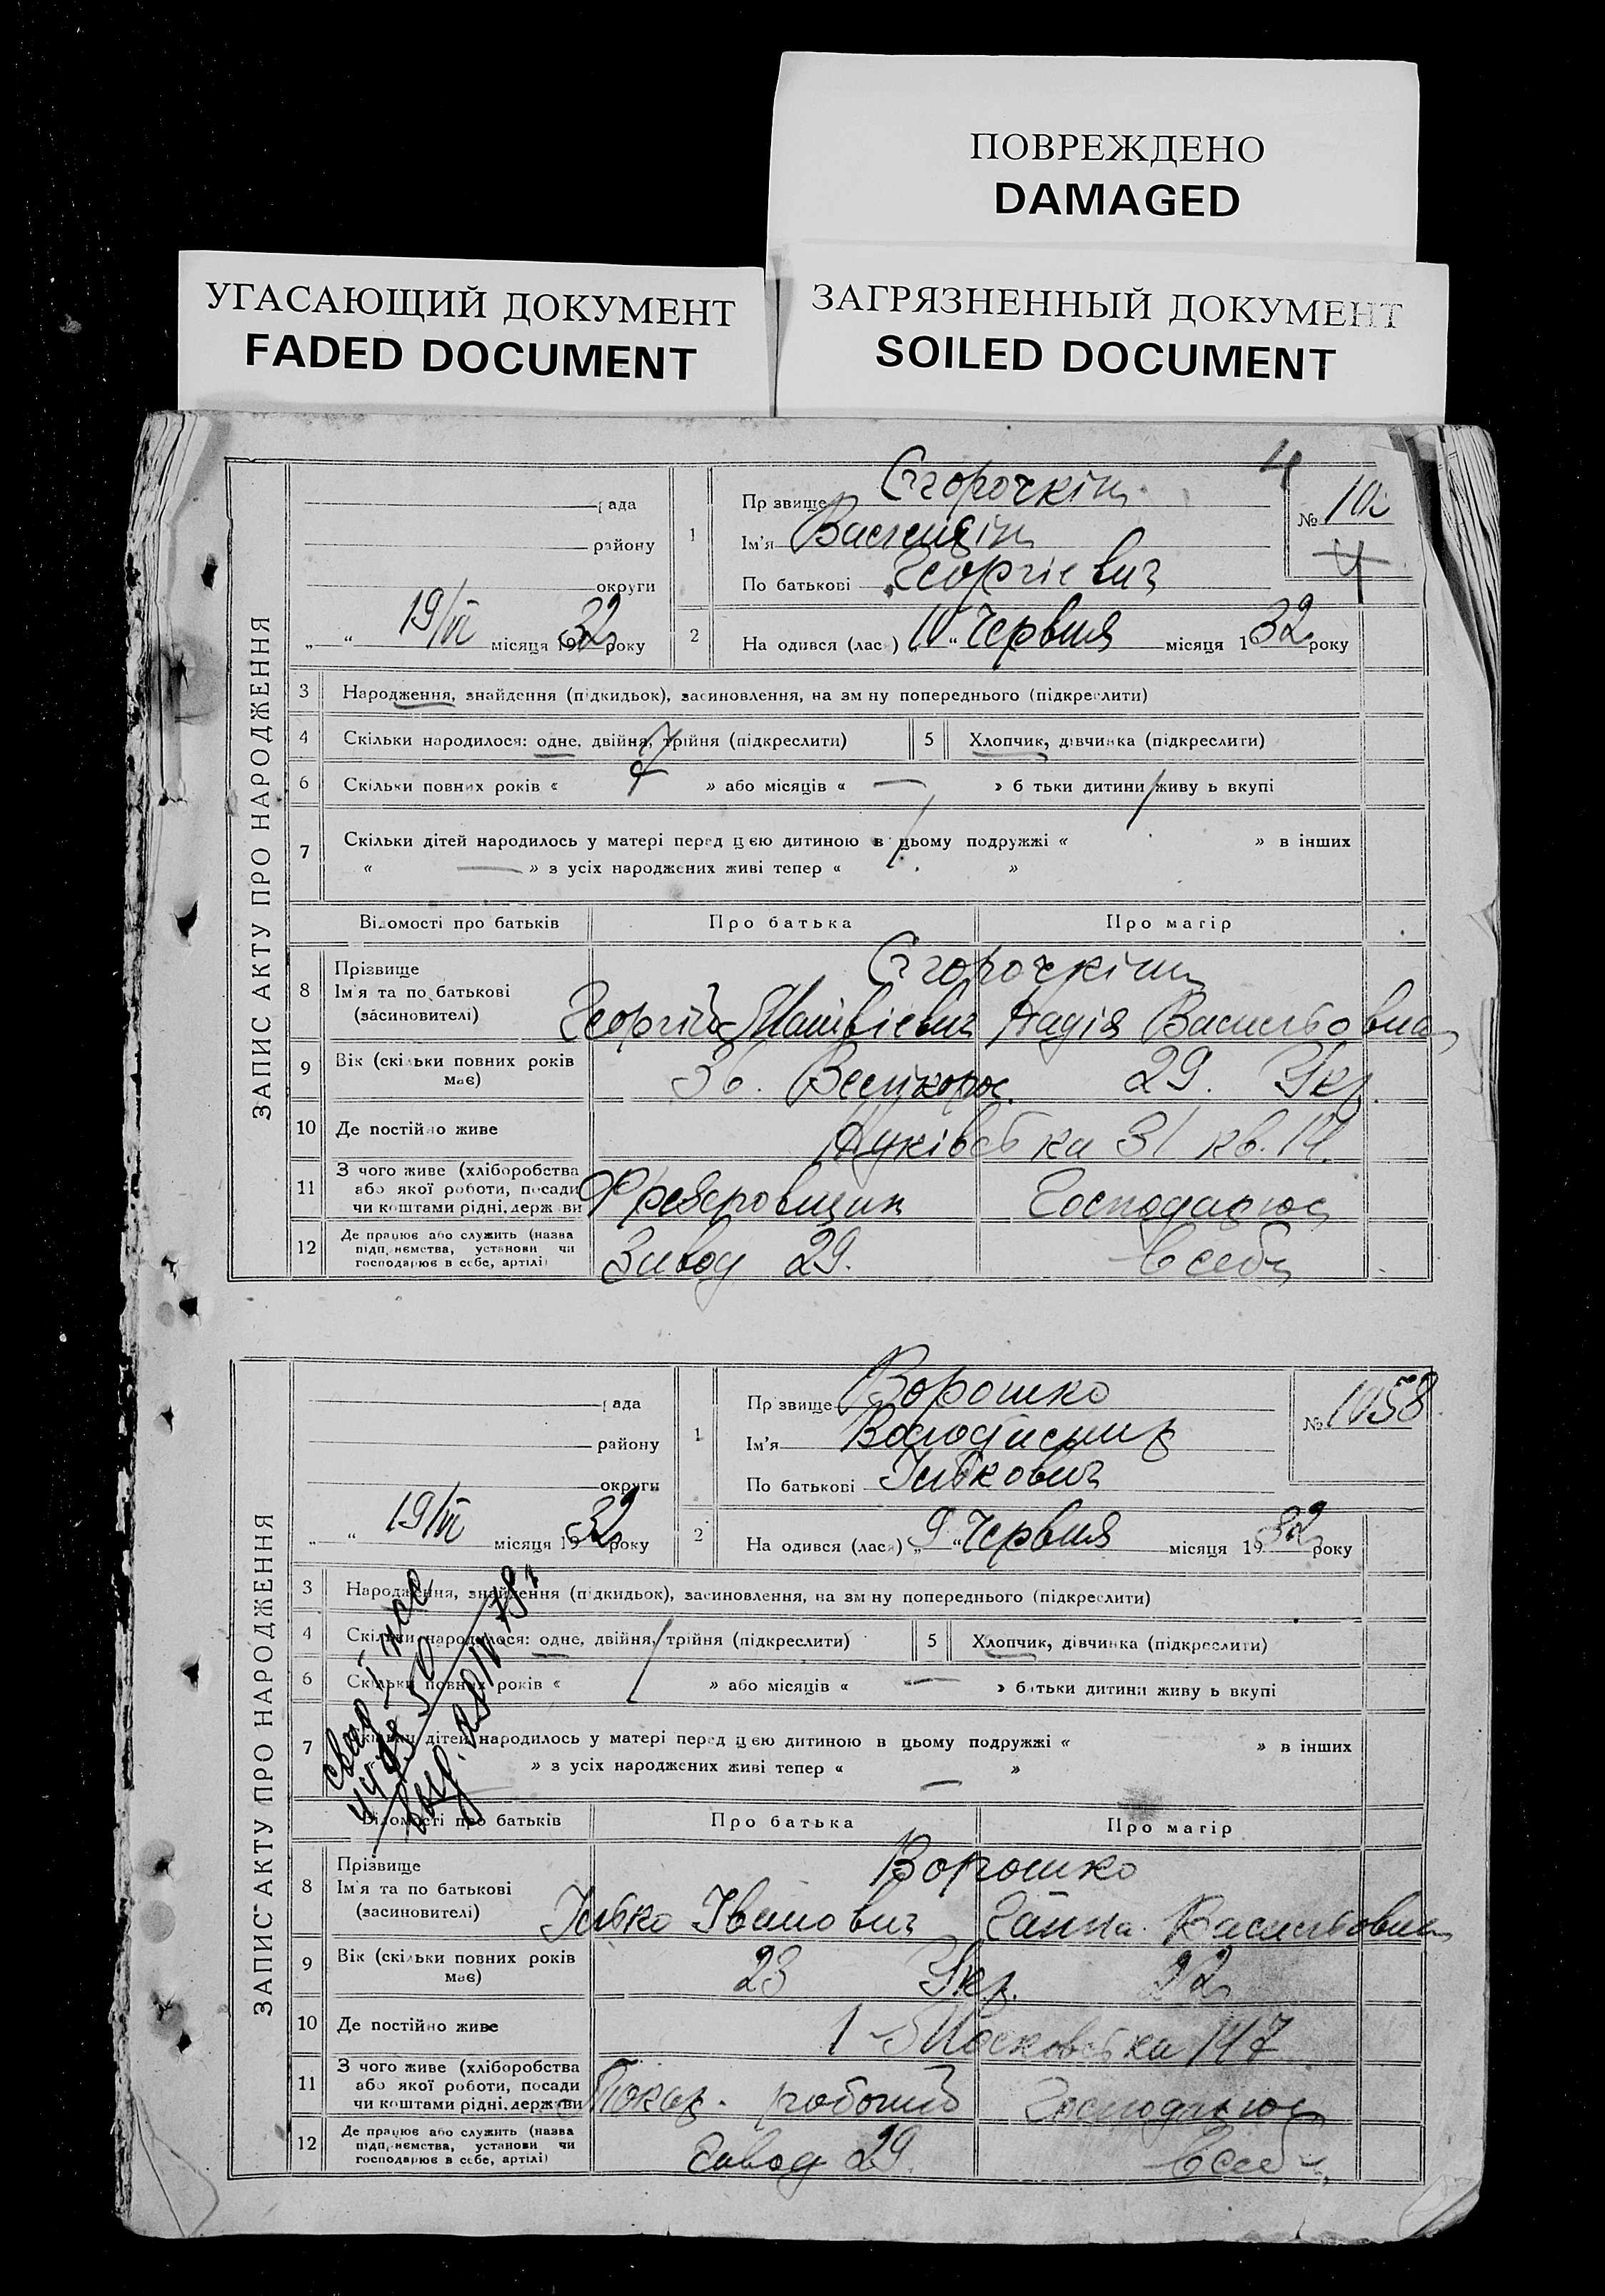 ПОВРЕЖДЕНО
DAMAGED
УГАСАЮЩИЙ ДОКУМЕНТ
FADED DOCUMENT
ЗАГРЯЗНЕННЫЙ ДОКУМЕНТ
SOILED DOCUMENT
ЗАПИС АКТУ ПРО НАРОДЖЕННЯ
рада
району
округи
19/VI місяця 1932 року
1
Прізвище
Ім'я
По батькові Георгіевич
№
4
2 На одився (лас ) „10“ Червня місяця 1 32 року
3 Народження, знайдення (підкидьок), засиновлення, на зм ну попереднього (підкреслити)
4 Скільки народилося: одне, двійня, трійня (підкреслити) 5 Хлопчик, дівчинка (підкреслити)
6 Скільки повних років « » або місяців « — » б тьки дитини живу ь вкупі
7 Скільки дітей народилось у матері перед цією дитиною в цьому подружжі « » в інших
« — » з усіх народжених живі тепер « »
Відомості про батьків Про батька Про матір
8 Прізвище
Ім'я та по батькові
(засиновителі)
Георгій Надія Васильовна
9 Вік (скільки повних років має) 36. Великорос. 29. Укр.
10 Де постійно живе 31 кв. 14.
11 З чого живе (хліборобства або якої роботи, посади чи коштами рідні, держ ви Фрезеровщик Господарює
12 Де працює або служить (назва підприємства, установи чи господарює в себе, артілі) Завод 29. в себе
ЗАПИС АКТУ ПРО НАРОДЖЕННЯ
рада
району
округи
19/VI місяця 1932 року
1
Прізвище Ворошко
Ім'я Володимир
По батькові Ількович
№ 1058
2 На одився (лася) „9“ Червня місяця 1932 року
3 Народження, знайдення (підкидьок), засиновлення, на зм ну попереднього (підкреслити)
4 Скільки народилося: одне, двійня, трійня (підкреслити) 5 Хлопчик, дівчинка (підкреслити)
6 Скільки повних років « 1 » або місяців « — » батьки дитини живу ь вкупі
7 Скільки дітей народилось у матері перед цією дитиною в цьому подружжі « » в інших
» з усіх народжених живі тепер « — »
Відомості про батьків Про батька Про матір
8 Прізвище
Ім'я та по батькові
(засиновителі)
Ворошко
Ілько Іванович Ганна Васильовна
9 Вік (скільки повних років має) 23 Укр. 22
10 Де постійно живе 1 Московська 147
11 З чого живе (хліборобства або якої роботи, посади чи коштами рідні, держави Токар. робочий Господарює
12 Де працює або служить (назва підприємства, установи чи господарює в себе, артілі) Завод 29. в себе